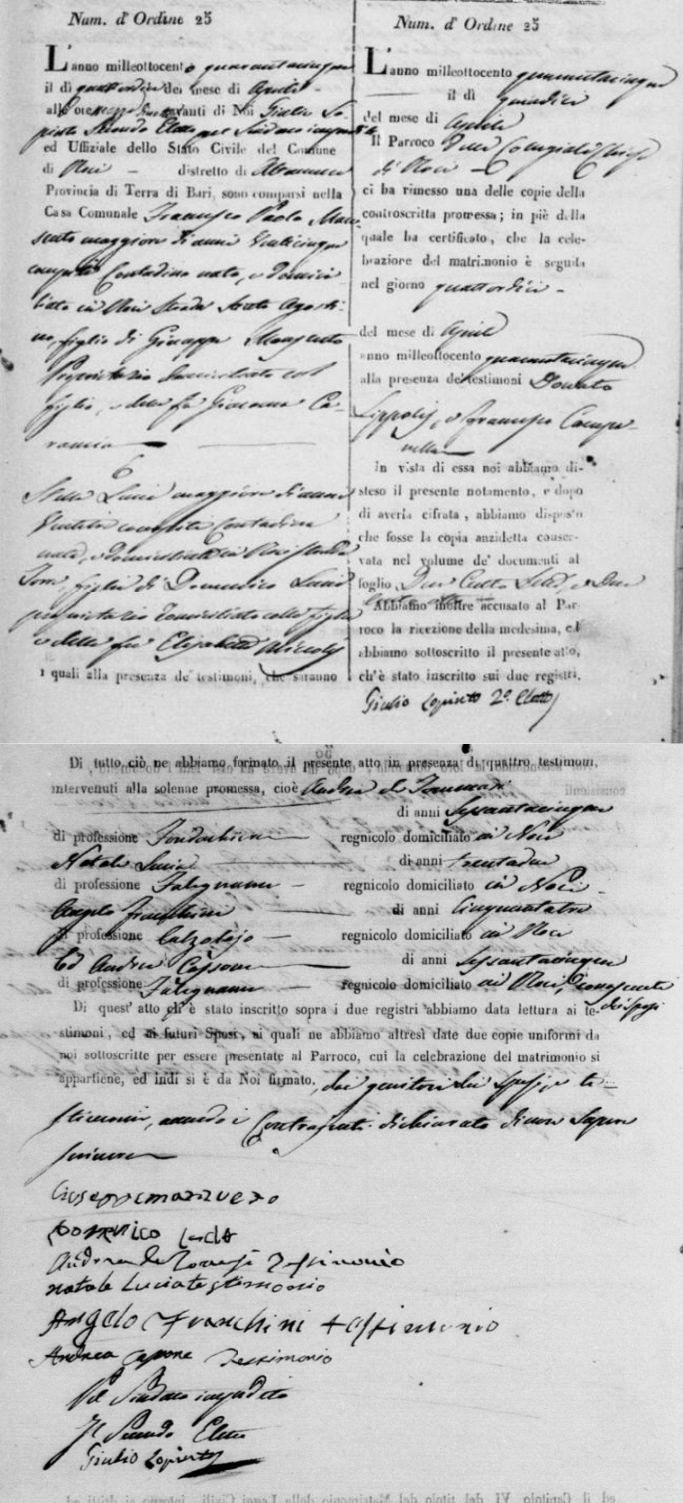 Num. d' Ordine 25
L'anno milleottocento quarantacinque
il dì quattordici del mese di Aprile
alle ore avanti di Noi Giulio Lo-
pinto Secondo Eletto pel Sindaco impedito
ed Uffiziale dello Stato Civile del Comune
di Noci distretto di Altamura
Provincia di Terra di Bari, sono comparsi nella
Casa Comunale Francesco Paolo Man-
maggiore di anni Venticinque
compiti Contadino nato, e domici-
liato in Noci Strada Santo Agosti-
no, figlio di Giuseppe
Proprietario domiciliato col
figlio, e della fu Giacoma Ca-
E
Stella Lucia maggiore di anni
compiti Contadina
nata, e domiciliata in Noci strada
figlia di Domenico Lucia
proprietario domiciliato colla figlia
e della fu Elisabetta
i quali alla presenza de' testimoni, che saranno
Num. d' Ordine 25
L'anno milleottocento quarantacinque
il dì quindici
del mese di Aprile
Il Parroco della Collegiata Chiesa
di Noci
ci ha rimesso una delle copie della
controscritta promessa; in piè della
quale ha certificato, che la cele-
brazione del matrimonio è seguita
nel giorno quattordici
del mese di Aprile
anno millesottocento quarantacinque
alla presenza de' testimoni Donato
Lippolis, e Francesco Campa-
nella
In vista di essa noi abbiamo di-
steso il presente notamento, e dopo
di averla cifrata, abbiamo disposto
che fosse la copia anzidetta conser-
vata nel volume de' documenti al
foglio
Abbiamo inoltre accusato al Par-
roco la ricezione della medesima, ed
abbiamo sottoscritto il presente atto,
ch'è stato inscritto sui due registri.
Giulio Lopinto 2º. Eletto
Di tutto ciò ne abbiamo formato il presente atto in presenza di quattro testimoni,
intervenuti alla solenne promessa, cioè Andrea de Tommasi
di anni Sessantacinque
di professione regnicolo domiciliato in Noci
Natale Lucia di anni trentadue
di professione Falegname regnicolo domiciliato in Noci
Angelo Franchini di anni Cinquantatre
di professione Calzolajo regnicolo domiciliato in Noci
Ed Andrea Capone di anni Sessantacinque
di professione Falegname regnicolo domiciliato in Noci, conoscenti
degli sposi
Di quest' atto ch' è stato inscritto sopra i due registri abbiamo data lettura ai te-
stimoni, ed ai futuri Sposi, ai quali ne abbiamo altresì date due copie uniformi da
noi sottoscritte per essere presentate al Parroco, cui la celebrazione del matrimonio si
appartiene, ed indi si è da Noi firmato, dai genitori dei sposi, e te-
stimoni, avendo i Contraenti dichiarato di non sapere
scrivere
Giuseppe manzuero
Domenico Lucia
Andrea de Tomasi Testimonio
natale Lucia testimonio
Angelo Franchini testimonio
Andrea Capone Testimonio
Pel Sindaco impedito
Il Secondo Eletto
Giulio Lopinto